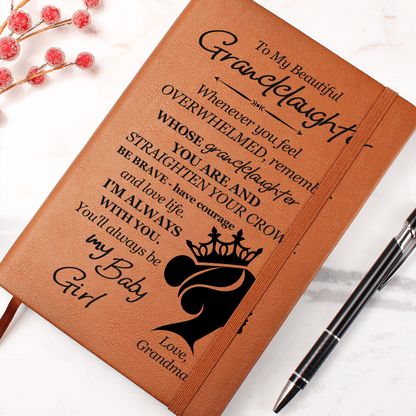 To My Beautiful
Granddaughter
Whenever you feel
OVERWHELMED, remember
WHOSE granddaughter
YOU ARE AND
STRAIGHTEN YOUR CROWN
BE BRAVE - have courage
and love life.
I'M ALWAYS
WITH YOU.
You'll always be
my Baby
Girl
Love,
Grandma